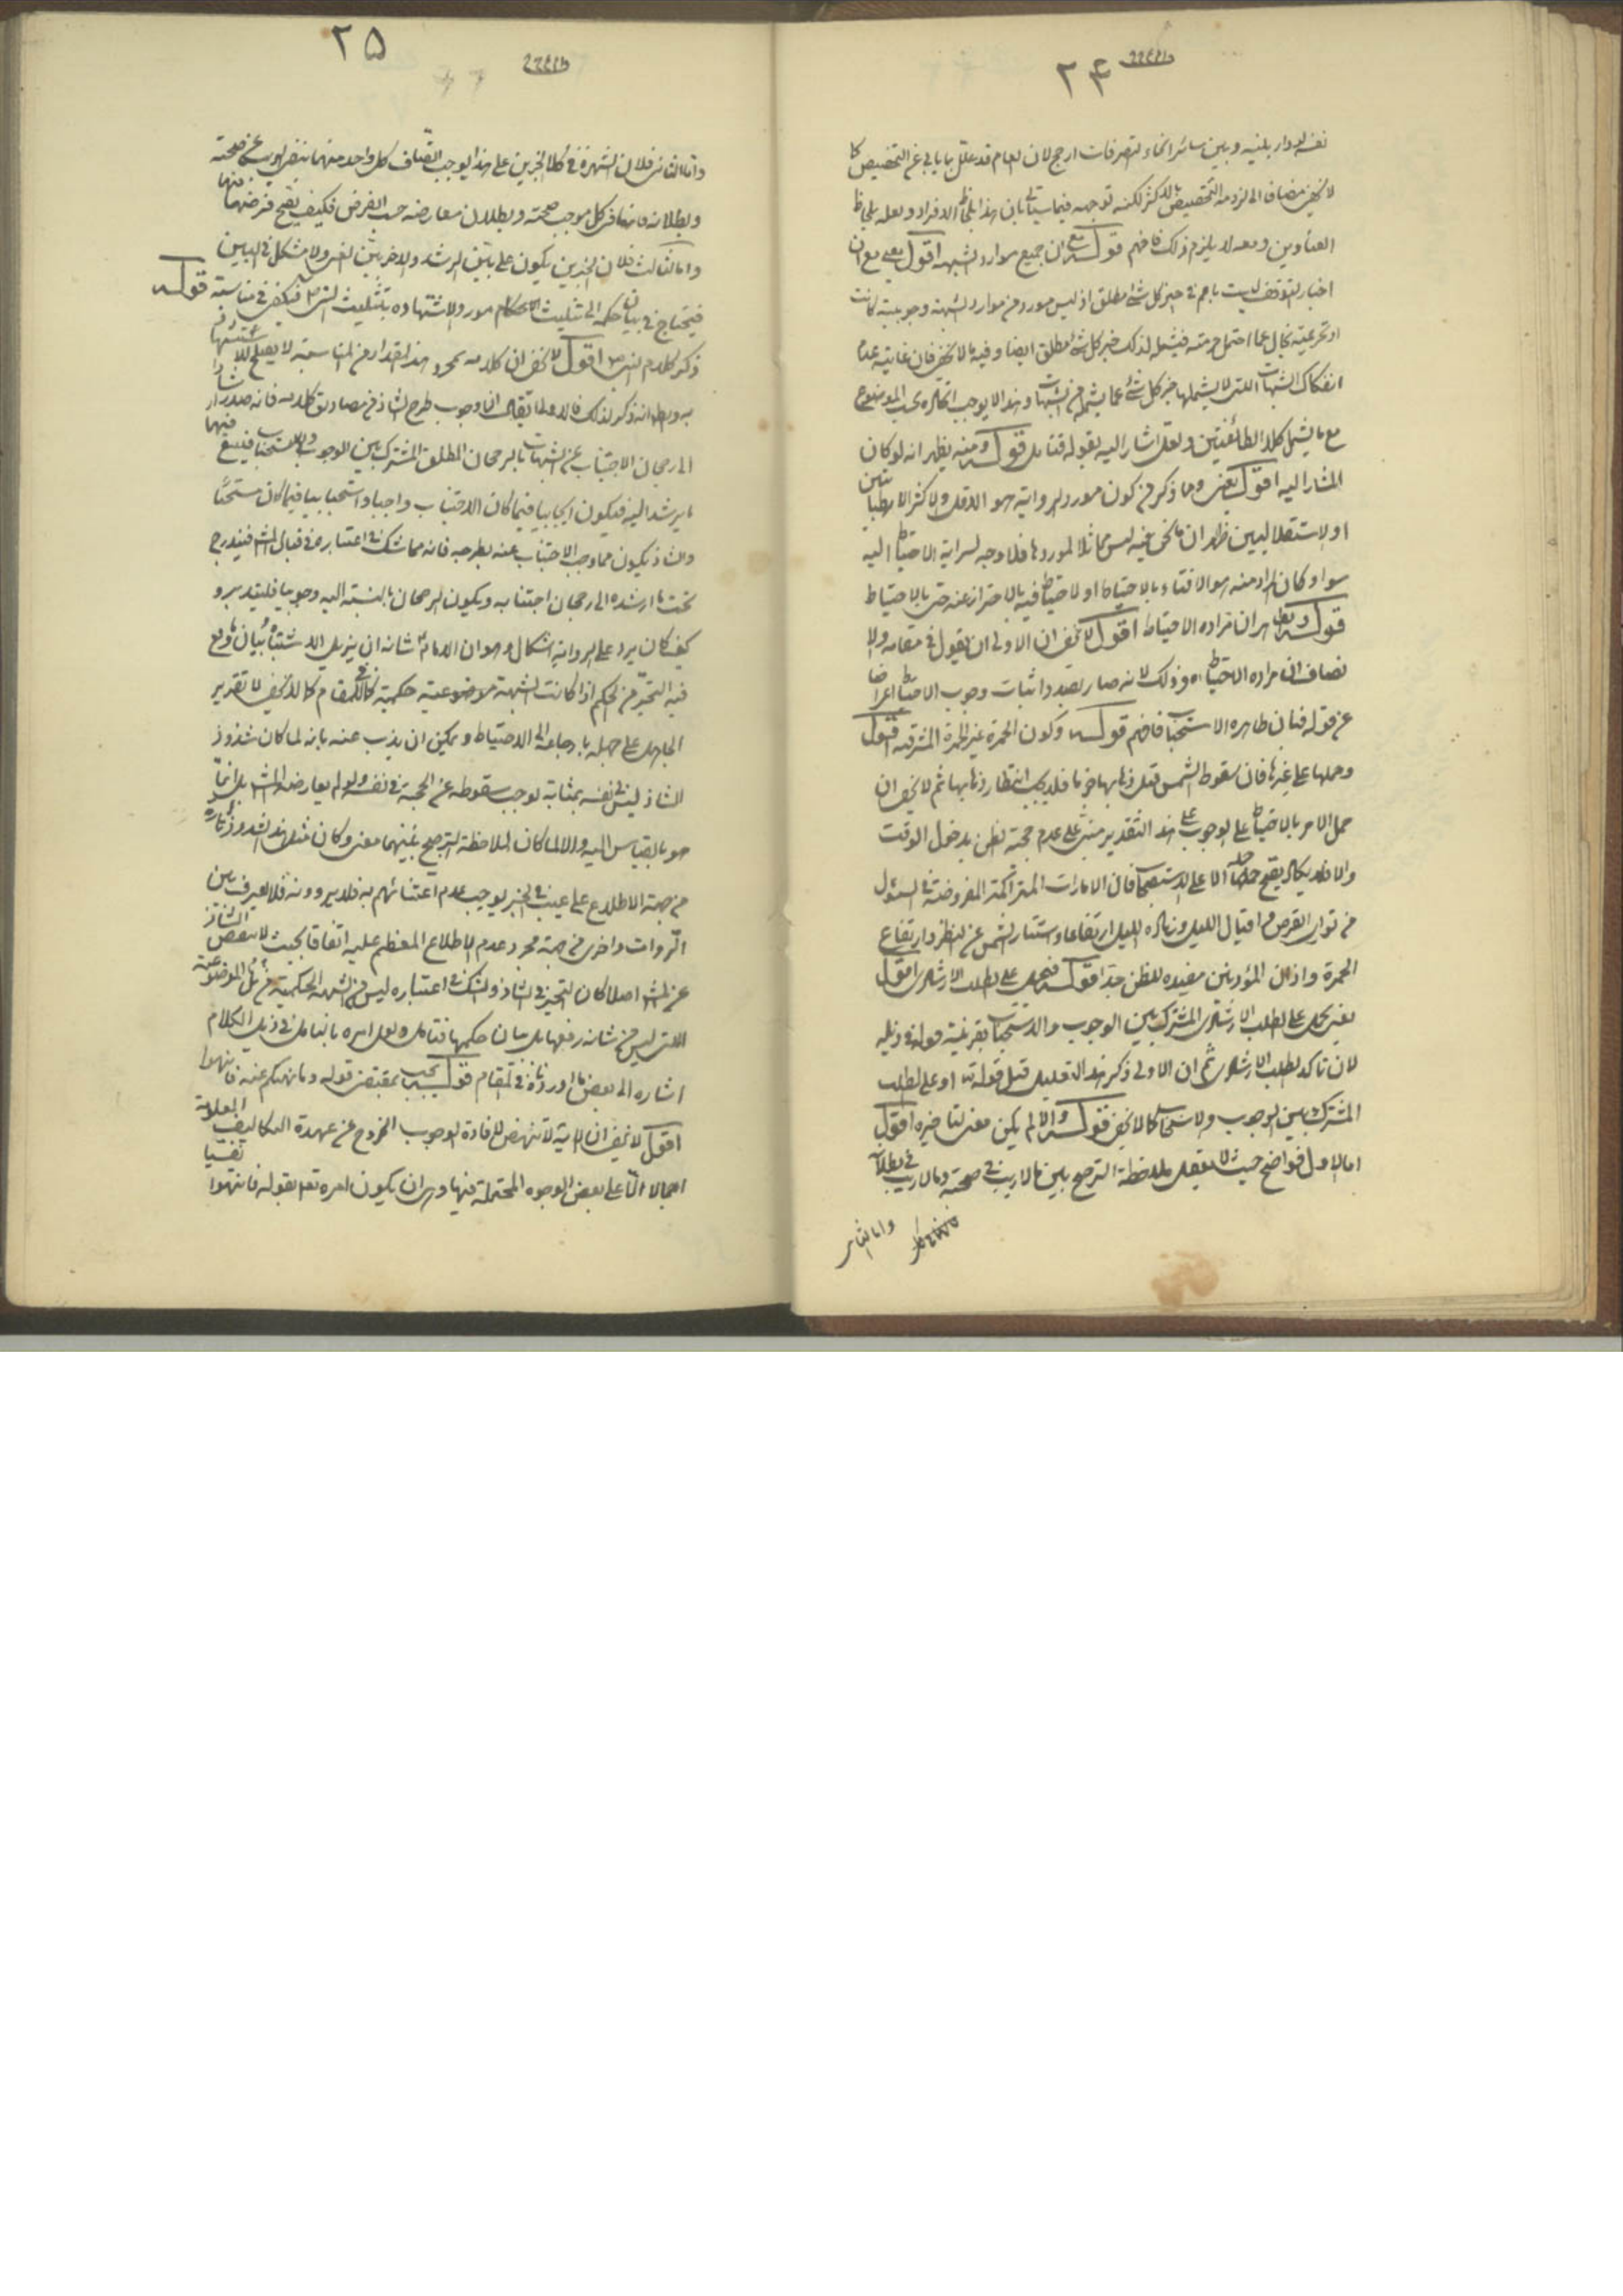 ۲۴
نفسه لو دار بينه وبين سائر انحاء التصرفات ارجح لان العام قد علل بما يابى عن التخصيص كما
لا يخفى مضافا الى لزومه التخصيص بالاكثر لكنه توجه فيما سيأتى بان هذا بلحاظ الافراد ولعله بلحاظ
العناوين ومعه لا يلزم ذلك فافهم قوله مع ان جميع موارد الشبهة اقول يعنى مع ان
اخبار التوقف ليست باعم من خبر كل شئ مطلق اذ ليس مورد من موارد الشبهة وجوبية كانت
او تحريمية بخال عما احتمل حرمته فيشمله لذلك خبر كل شئ مطلق ايضا وفيه ما لا يخفى فان غايته عدم
انفكاك الشبهات اللتى لا يشملها خبر كل شئ عما يشمله من الشبهات وهذا لا يوجب اتحاده بحسب الموضوع
مع ما يشمل كلا الطائفتين ولعله اشار اليه بقوله فتامل قوله ومنه يظهر انه لو كان
المشار اليه اقول يعنى وما ذكر من كون مورد الرواية هو الاقل والاكثر الارتباطيين
او الاستقلاليين ظهر ان ما نحن فيه ليس مماثلا لموردها فلا وجه لسراية الاحتياط اليه
سواء كان المراد منه هو الافتاء بالاحتياط او الاحتياط فيه بالاحتراز عنه حتى بالاحتياط
قوله ويظهر ان مراده الاحتياط اقول لا يخفى ان الاولى ان يقول فى مقامه ولا
نصاف ان مراده الاحتياط وذلك لانه صار بصدد اثبات وجوب الاحتياط اعراضا
عن قوله فبان ظاهره الاستحباب فافهم قوله وكون الحمرة غير الحمرة المشرقية اقول
وحملها على غيرها فان سقوط الشمس قبل ذهابها جزما فلا يجب انتظار ذهابها ثم لا يخفى ان
حمل الامر بالاحتياط على الوجوب على هذا التقدير مبنى على عدم حجية الظن بدخول الوقت
والا فلا يكاد يصح حمله الا على الاستحباب فان الامارات المتراكمة المفروضة فى السؤال
من توارى القرص واقبال الليل وزيادة الليل ارتفاعا واستتار الشمس عن النظر وارتفاع
الحمرة واذان المؤذنين مفيدة للظن جدا قوله فيحمل على الطلب الارشادى اقول
يعنى يحمل على الطلب الارشادى المشترك بين الوجوب والاستحباب بقرينة قوله فى ذيله
لان تاكد الطلب الارشادى ثم ان الاولى ذكر هذا التعليل قبل قوله او على الطلب
المشترك بين الوجوب والاستحباب كما لا يخفى قوله والا لم يكن معنى لتاخيره اقول
اما الاول فواضح حيث لا يعقل ملاحظة الترجيح بين ما لا ريب فى صحته وما لا ريب فى بطلانه
واما الثانى
۲۵
واما الثانى فلان الشهرة فى كلا الخبرين على هذا يوجب اتصاف كل واحد منهما بنفى الريب عن صحته
وبطلانه فانها فى كل موجب صحته وبطلان معارضه حسب الفرض فكيف يصح فرضها فيهما
واما الثالث فلان الخبرين يكون على بين الرشد والاخر بين الغى ولا مشكل فى البين
فيحتاج فى بيان حكمه الى تثليث الاحكام مورد الاستشهاد بتثليث النبى ص فيكفى فى مناسبة قوله
ذكر كلام النبى ص اقول لا يخفى ان كلامه بمجرد هذا المقدار من المناسبة لا يصلح للاستشهاد
به وظ انه ذكر لذلك فالاولى ان يقال ان وجوب طرح الشاذ من مصاديق كلامه فانه صدد ارشاد
الى رجحان الاجتناب عن الشبهات بالرجحان المطلق المشترك بين الوجوب والاستحباب فيتبع فيها
ما يرشد اليه فيكون ايجابيا فيما كان الاجتناب واجبا واستحبابيا فيما كان مستحبا
والشاذ يكون مما وجب الاجتناب عنه بطرحه فانه مما شك فى اعتباره فى قبال المشهور فيندرج
تحت ما ارشده الى رجحان اجتنابه ويكون الرجحان بالنسبة اليه وجوبيا فليتدبر و
كيف كان يرد على الرواية اشكال وهو ان الامام ع شانه ان يزيل الاشتباه ببيان ما وقع
فيه التحير من الحكم اذا كانت الشبهة موضوعية حكمية كما فى المقام كما لا يخفى لا تقرير
الجاهل على جهله بارجاعه الى الاحتياط ويمكن ان يذب عنه بانه لما كان شذوذ
الشاذ ليس فى نفسه بمثابة يوجب سقوطه عن الحجية فى نفسه ولو لم يعارضه المشهور بل انما
هو بالقياس اليه والا لما كان لملاحظة الترجيح بينهما معنى وكان مثل هذا الشذوذ تارة
من جهة الاطلاع على عيب فى الخبر يوجب عدم اعتنائهم به فلا يروونه فلا يعرف بين
الروات واخرى من جهة مجرد عدم الاطلاع المعظم عليه اتفاقا بحيث لا ينقص الشاذ
عن المشهور اصلا كان التحير فى الشاذ والشك فى اعتباره ليس من الشبهة الحكمية بل الموضوعية
اللتى ليس من شانه رفعها بل بيان حكمها فتامل ولعل امره بالتامل فى ذيل الكلام
اشارة الى بعض ما اوردناه فى المقام قوله يجب بمقتضى قوله وما نهيكم عنه فانتهوا
اقول لا يخفى ان الاية لا تنهض لافادة الوجوب الخروج عن عهدة التكاليف المعلومة
اجمالا الا على بعض الوجوه المحتملة فيها وهى ان يكون امره تعالى بقوله فانتهوا نفسيا